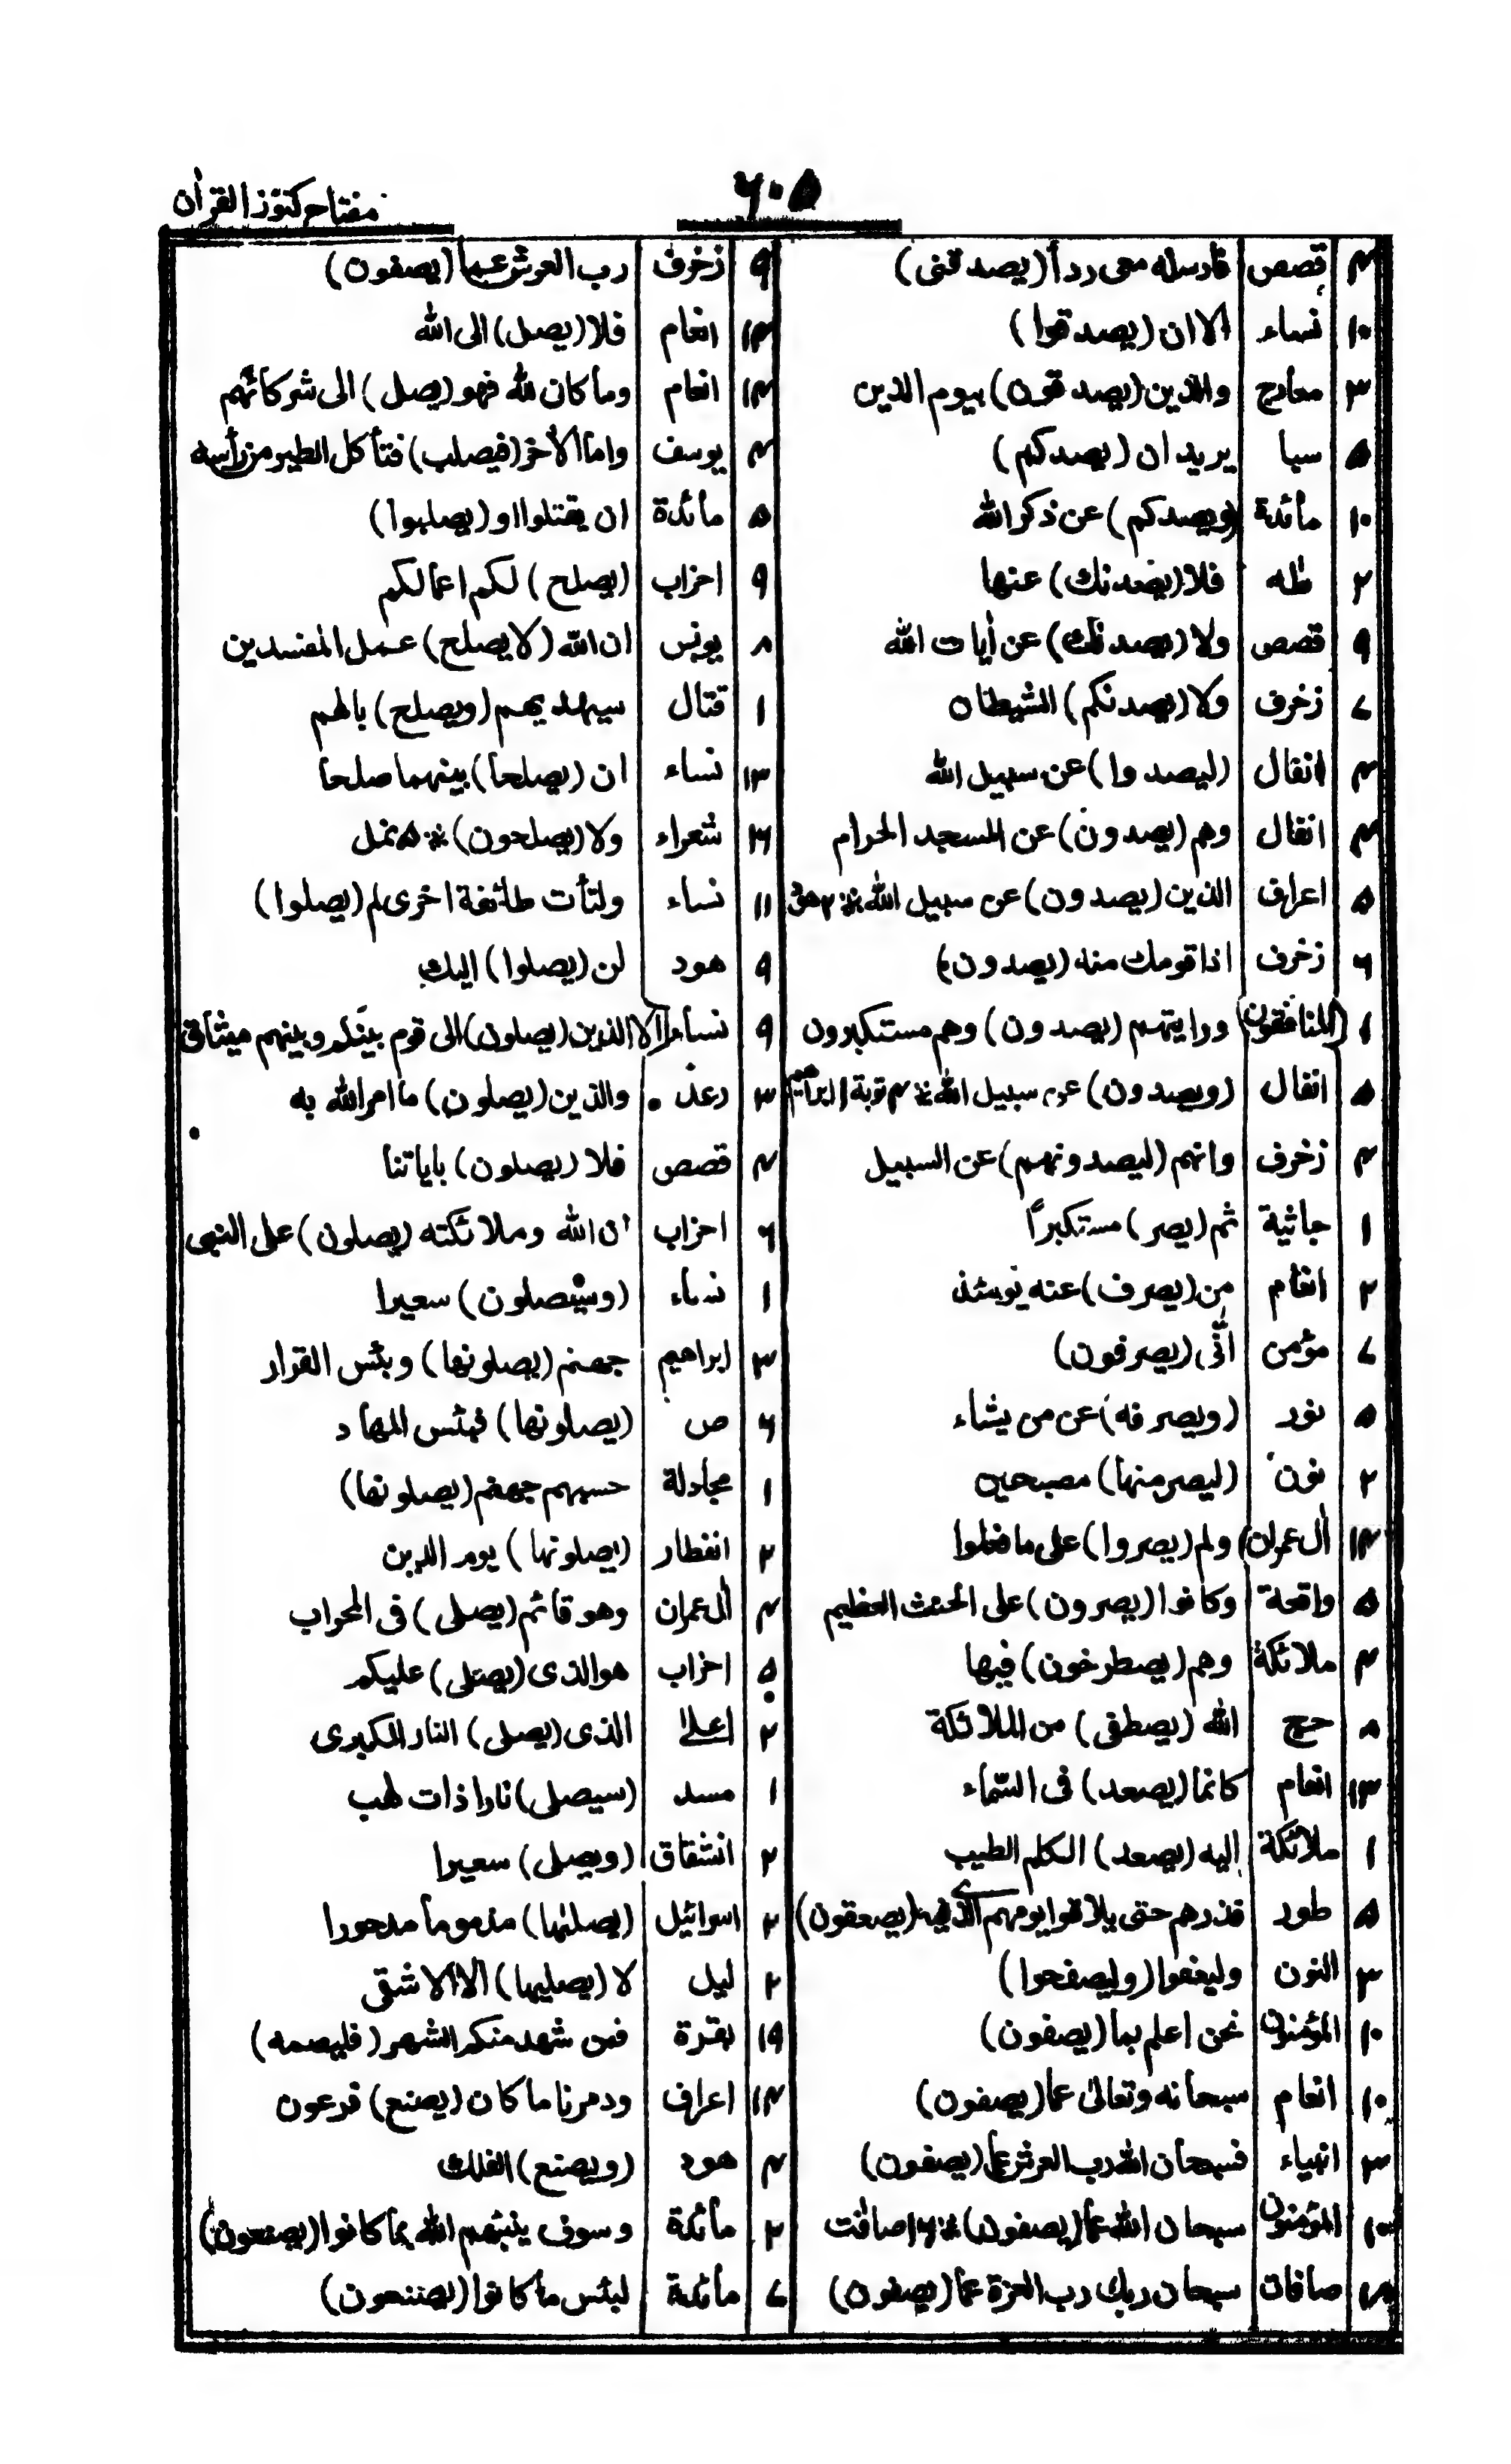 ۶۰۵
مفتاح کنوز القرآن
۴ قصص فارسله معی ردأ (یصدقنی)
۱۰ نساء الا ان (یصدقوا)
۳ معارج والذین (یصدقون) بیوم الدین
۵ سبا یرید ان (یصدکم)
۱۰ مائدة (ویصدکم) عن ذکر الله
۲ طه فلا (یصدنك) عنها
۹ قصص ولا (یصدنك) عن أیات الله
۷ زخرف ولا (یصدنکم) الشیطان
۴ انفال (لیصدوا) عن سبیل الله
۴ انفال وهم (یصدون) عن المسجد الحرام
۵ اعراف الذین (یصدون) عن سبیل الله ※ ۲ هود
۶ زخرف اذا قومك منه (یصدون)
۱ المنافقون ورایتهم (یصدون) وهم مستکبرون
۵ انفال (ویصدون) عن سبیل الله ※ ۴ توبة ۱ ابراهیم
۴ زخرف وانهم (لیصدونهم) عن السبیل
۱ جاثیة ثم (یصر) مستکبراً
۲ انعام من (یصرف) عنه یومئذ
۷ مؤمن انّٰی (یصرفون)
۵ نور (ویصرفه) عن من یشاء
۲ نون (لیصرمنها) مصبحین
۱۴ أل عمران ولم (یصروا) علی ما فعلوا
۵ واقعة وکانوا (یصرون) علی الحنث العظیم
۴ ملائکة وهم (یصطرخون) فیها
۸ حج الله (یصطفی) من الملائکة
۱۳ انعام کانما (یصعد) فی السّماء
۱ ملائکة إلیه (یصعد) الکلم الطیب
۵ طور فذرهم حتی یلاقوا یومهم الذی فیه (یصعقون)
۳ النون ولیعفوا (ولیصفحوا)
۱۰ المؤمنون نحن اعلم بما (یصفون)
۱۰ انعام سبحانه وتعالیٰ عما (یصفون)
۳ انبیاء فسبحان الله رب العرش عما (یصفون)
۱۰ المؤمنون سبحان الله عما (یصفون) ※ ۱۶ صافٰت
صافات سبحان ربك رب العزة عما (یصفون)
۹ زخرف رب العرش عما (یصفون)
۱۴ انعام فلا (یصل) الی الله
۱۴ انعام وما کان لله فهو (یصل) الی شرکائهم
۴ یوسف واما الأخر (فیصلب) فتأکل الطیر من رأسه
۵ مائدة ان یقتلوا او (یصلبوا)
۹ احزاب (یصلح) لکم اعمالکم
۸ یونس ان الله (لا یصلح) عمل المفسدین
۱ قتال سیهدیهم (ویصلح) بالهم
۱۳ نساء ان (یصلحا) بینهما صلحا
شعراء ولا (یصلحون) ※ ۵ نمل
۱۱ نساء ولتأت طائفة اخری لم (یصلوا)
۹ هود لن (یصلوا) الیك
۹ نساء الا الذین (یصلون) الی قوم بینکم وبینهم میثاق
۳ رعد والذین (یصلون) ما امر الله به
۴ قصص فلا (یصلون) بایاتنا
۶ احزاب ان الله وملائکته (یصلون) علی النبی
۱ نساء (وسیصلون) سعیرا
۳ ابراهیم جهنم (یصلونها) وبئس القرار
۴ ص (یصلونها) فبئس المهاد
۱ مجادلة حسبهم جهنم (یصلونها)
۲ انفطار (یصلونها) یوم الدین
۴ أل عمران وهو قائم (یصلی) فی المحراب
۵ احزاب هو الذی (یصلی) علیکم
۲ اعلیٰ الذی (یصلی) النار الکبری
۱ مسد (سیصلی) نارا ذات لهب
۲ انشقاق (ویصلی) سعیرا
۲ اسرائیل (یصلٰها) مذموما مدحورا
۲ لیل لا (یصلیها) الا الاشقی
بقرة فمن شهد منکم الشهر (فلیصمه)
۱۴ اعراف ودمرنا ما کان (یصنع) فرعون
۴ هود (ویصنع) الفلك
۲ مائدة وسوف ینبئهم الله بما کانوا (یصنعون)
۷ مائدة لبئس ما کانوا (یصنعون)